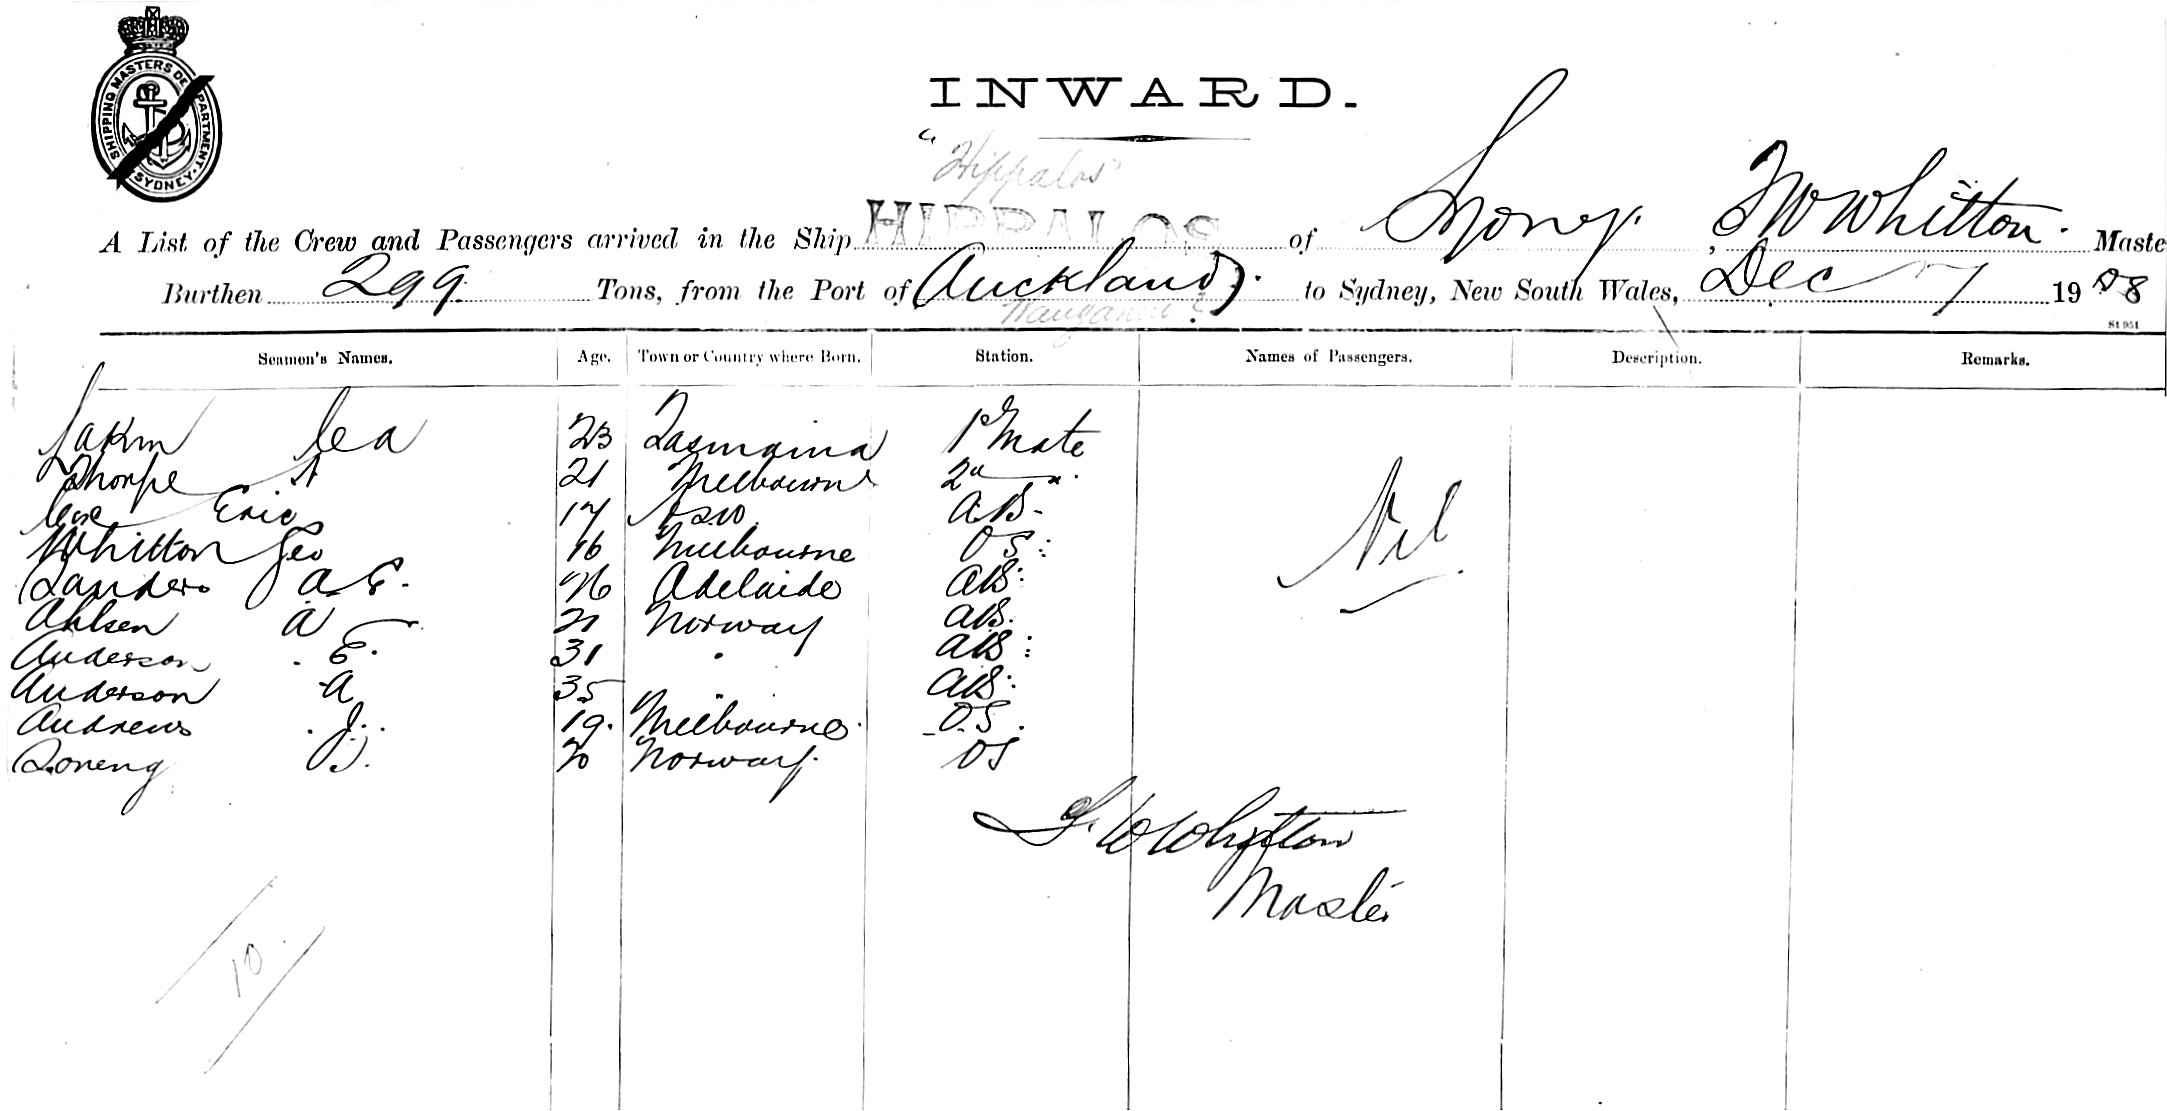 SHIPPING MASTERS DEPARTMENT
SYDNEY.
INWARD.
"Hippalos"
A List of the Crew and Passengers arrived in the Ship HIPPALOS of Sydney. F W Whitton. Maste
Burthen 299 Tons, from the Port of Auckland to Sydney, New South Wales, Dec 7 1908
Wanganui ?
St 951
Seamen's Names. Age. Town or Country where Born. Station. Names of Passengers. Description. Remarks.
23 Tasmaina 1st Mate
Thorpe A 21 Melbourne 2d "
Eric 17 NSW. AB-
Whitton Geo 16 Melbourne OS:
Sanders A. E. 26 Adelaide AB:
Nil
Ahlsen A 21 Norway AB.
Anderson E. 31 " AB:
Anderson A 35 " AB:
Andrews J. 19. Melbourne. OS.
J. 20 Norway. OS
F. W Whitton
Master
10.